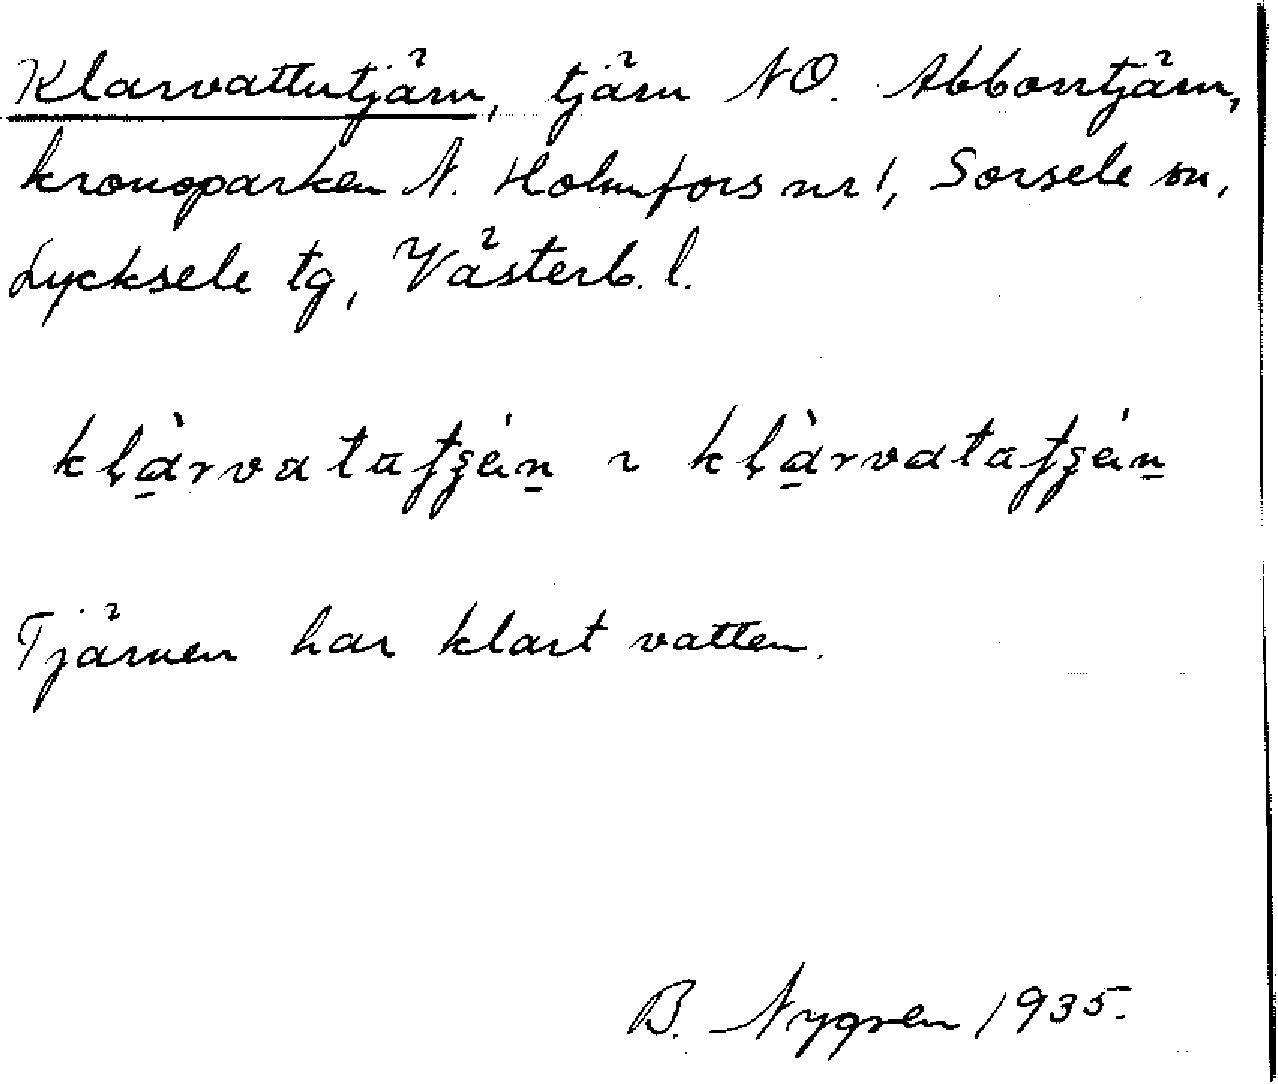 Klarvattutjärn, tjärn NO. Abborrtjärn,
kronoparken N. Holmfors nr 1, Sorsele sn,
Lycksele tg, Västerb. l.
Tjärnen har klart vatten.
B. Nygren 1935.